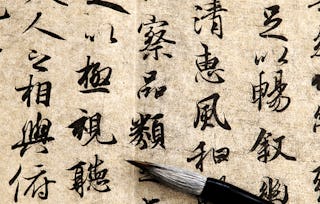 足以暢敘幽
清惠風和
察品類之
以極視聽
人之相與俯